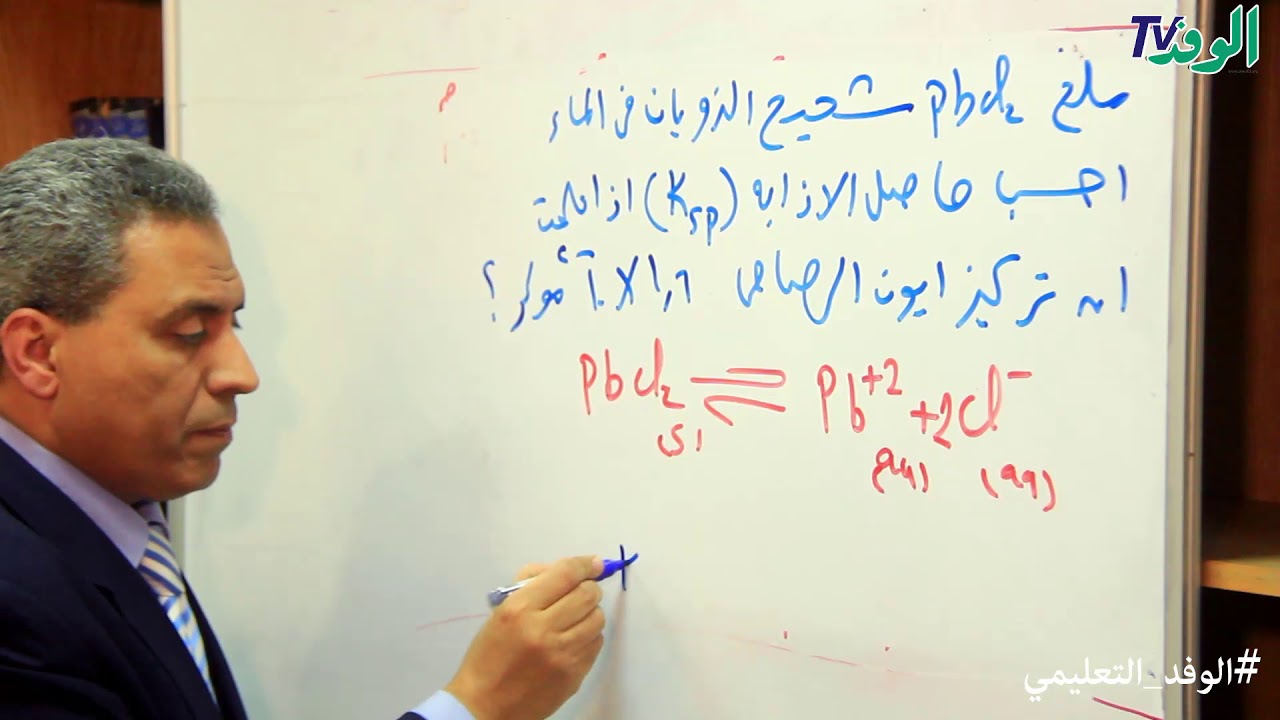 الوفد TV
ملح PbCl₂ شحيح الذوبان فى الماء
احسب حاصل الاذابه (Ksp) اذا علمت
ان تركيز ايون الرصاص
PbCl₂ ⇌ Pb⁺² + 2Cl⁻
(s) (aq) (aq)
#الوفد_التعليمي